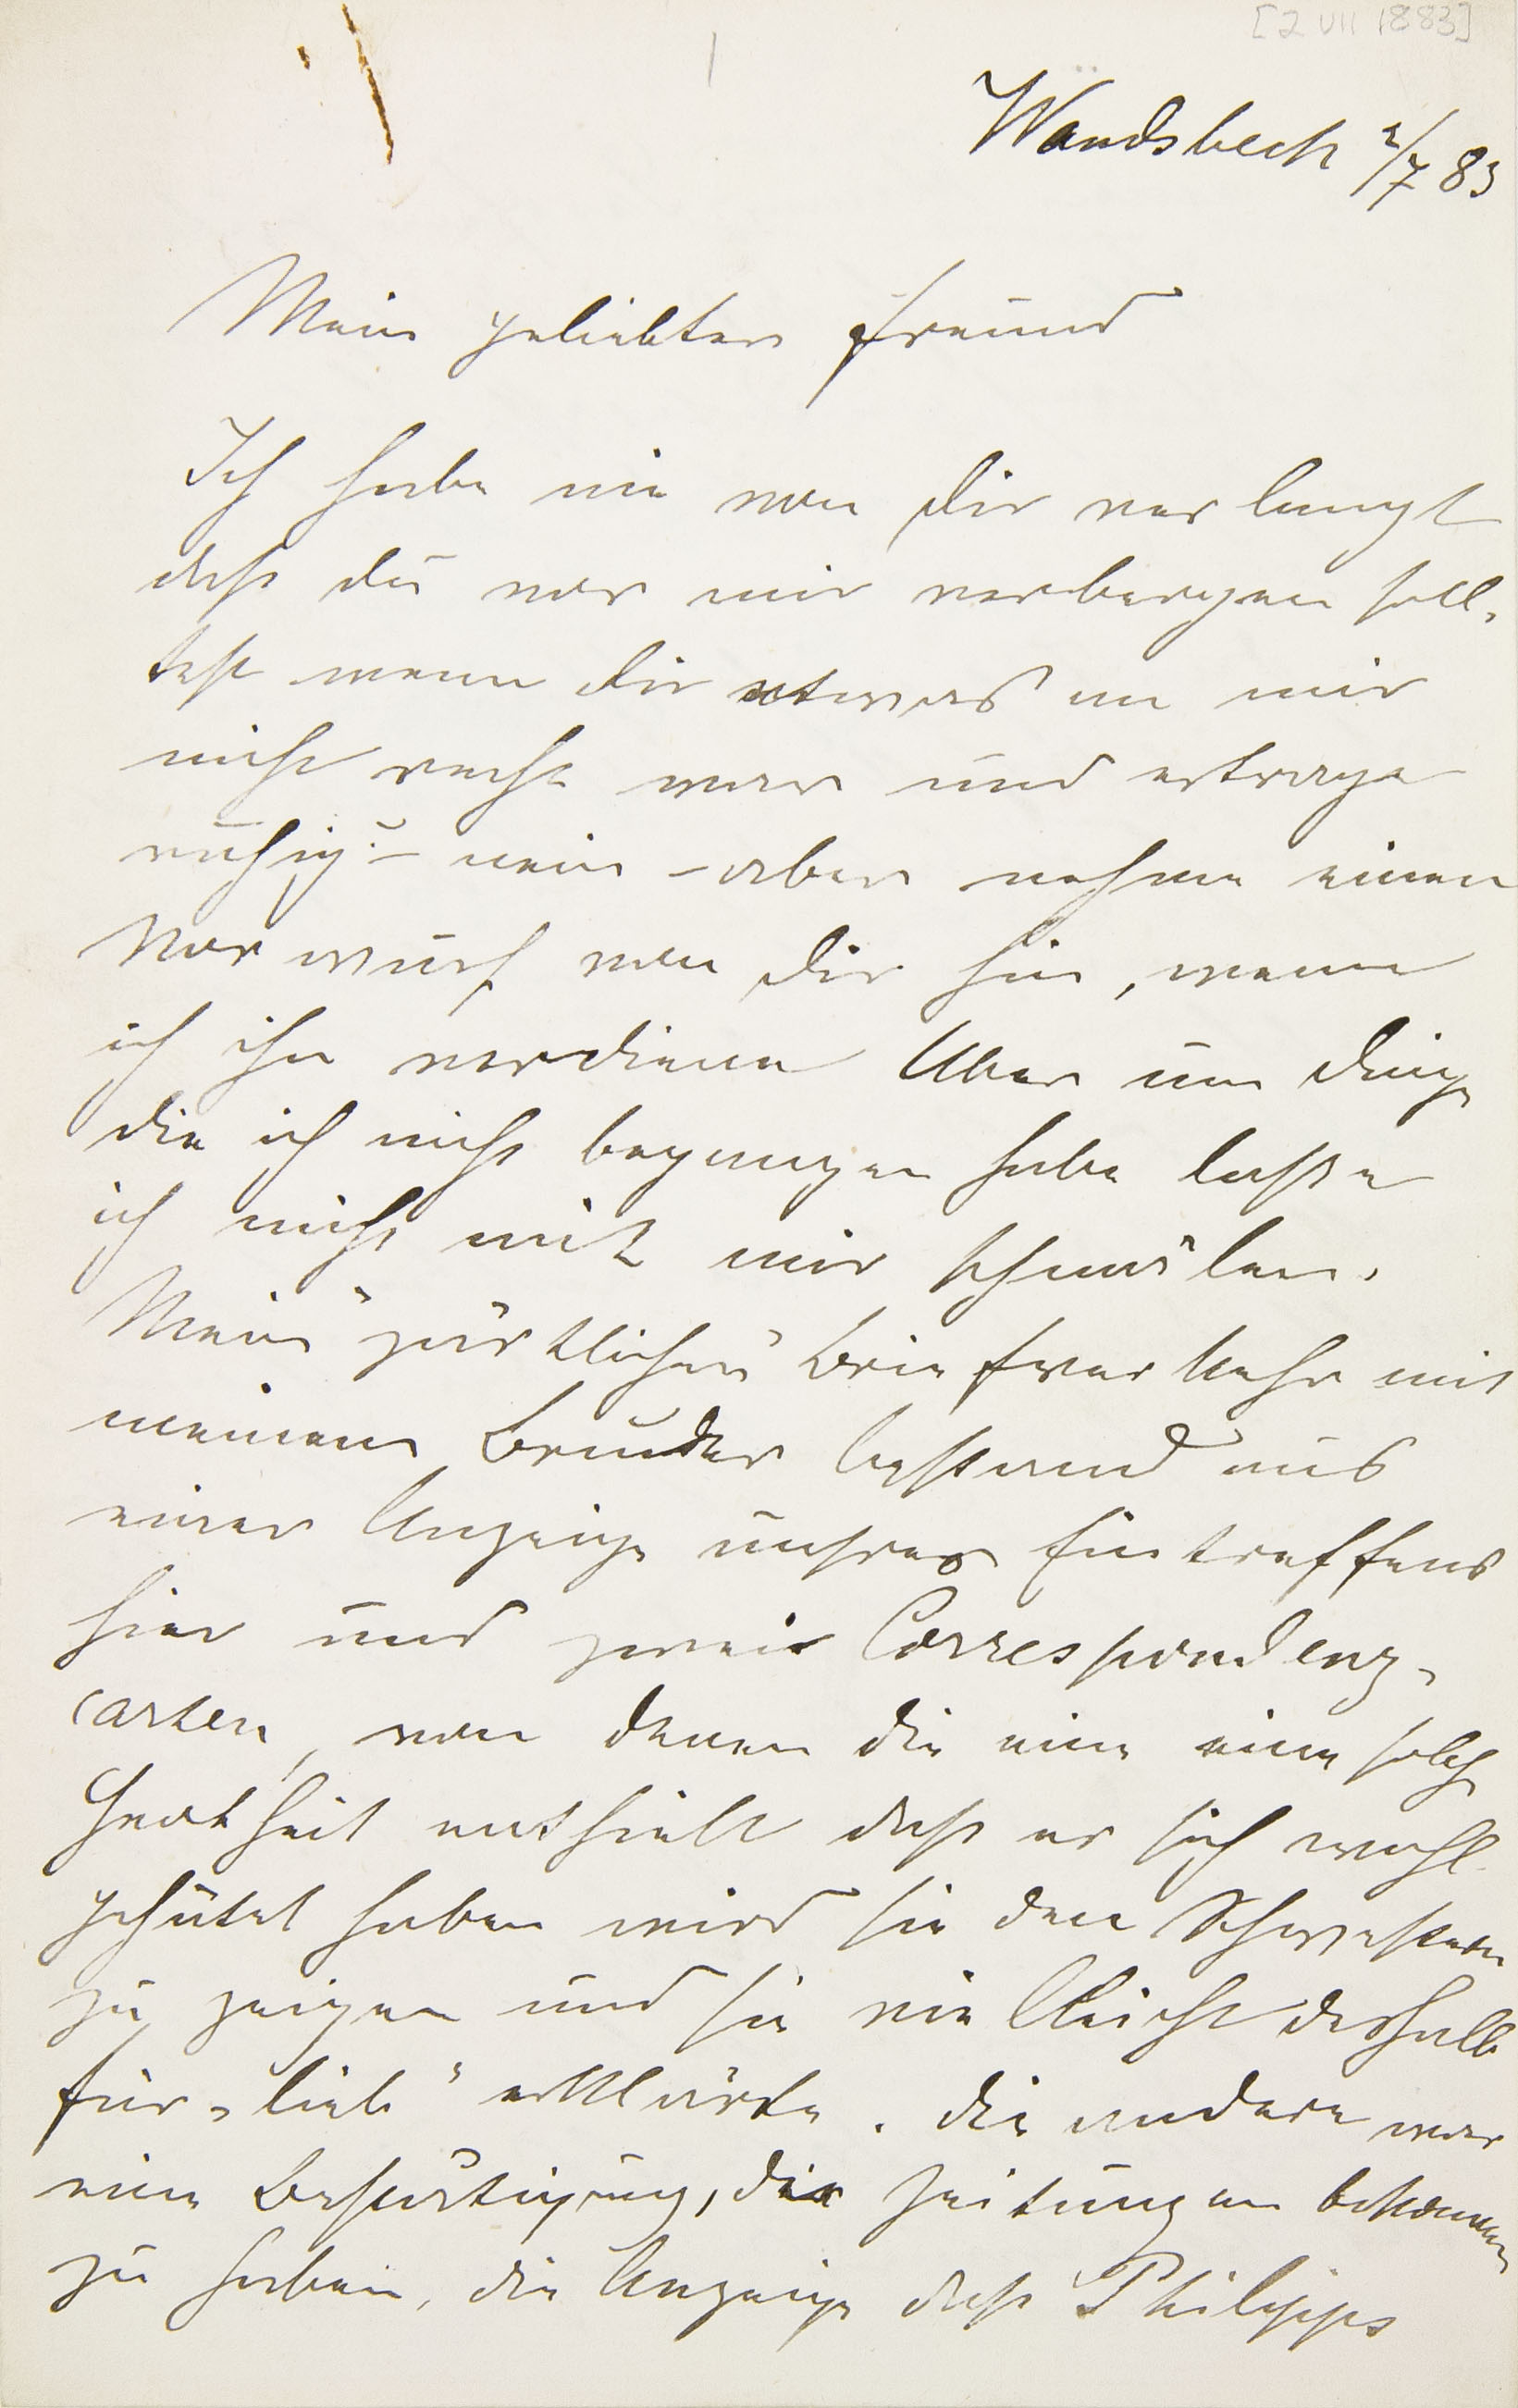 [2 VII 1883]
Wandsbeck 2/7 83
Mein geliebter Freund
Ich habe nie von dir verlangt
daß du vor mir verbergen soll-
test wenn dir etwas an mir
nicht recht war und ertrage
ruhig? – nein – aber nehme einen
Vorwurf von dir hin, wenn
ich ihn verdiene Aber um Dinge
die ich nicht begangen habe lasse
ich nicht mit mir schmälen.
Mein "zärtlicher" Briefverkehr mit
meinem Bruder bestand aus
einer Anzeige unsres Eintreffens
hier und zwei Correspondenz-
carten, von denen die eine eine solche
Grobheit enthielt daß er sich wohl
gehütet haben wird sie den Schwestern
zu zeigen und sie vielleicht deshalb
für „lieb" erklärte. Die andere war
eine Bestätigung, die Zeitungen bekommen
zu haben, die Anzeige daß Philipps